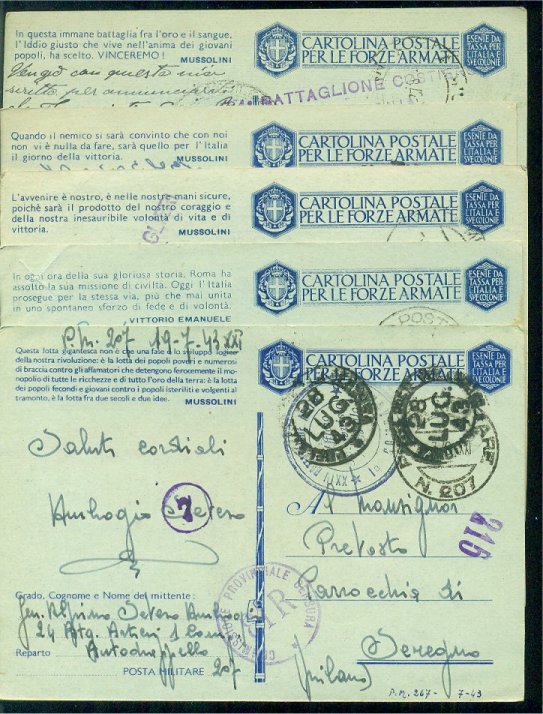 In questa immane battaglia fra l'oro e il sangue,
l'Iddio giusto che vive nell'anima dei giovani
popoli, ha scelto. VINCEREMO !
MUSSOLINI
CARTOLINA POSTALE
PER LE FORZE ARMATE
ESENTE DA
TASSA PER
L'ITALIA E
SVE COLONIE
con questa mia
BATTAGLIONE
Quando il nemico si sarà convinto che con noi
non vi è nulla da fare, sarà quello per l'Italia
il giorno della vittoria.
MUSSOLINI
CARTOLINA POSTALE
PER LE FORZE ARMATE
ESENTE DA
TASSA PER
L'ITALIA E
SVE COLONIE
L'avvenire è nostro, è nelle nostre mani sicure,
poichè sarà il prodotto del nostro coraggio e
della nostra inesauribile volontà di vita e di
vittoria.
MUSSOLINI
CARTOLINA POSTALE
PER LE FORZE ARMATE
ESENTE DA
TASSA PER
L'ITALIA E
SVE COLONIE
In ogni ora della sua gloriosa storia, Roma ha
assolto la sua missione di civiltà. Oggi l'Italia
prosegue per la stessa via, più che mai unita
in uno spontaneo sforzo di fede e di volontà.
VITTORIO EMANUELE
CARTOLINA POSTALE
PER LE FORZE ARMATE
ESENTE DA
TASSA PER
L'ITALIA E
SVE COLONIE
POST
P.M. 207 19-7-43 XXI
Questa lotta gigantesca non è che una fase dello sviluppo logico
della nostra rivoluzione: è la lotta dei popoli poveri e numerosi
di braccia contro gli affamatori che detengono ferocemente il mo-
nopolio di tutte le ricchezze e di tutto l'oro della terra: è la lotta
dei popoli fecondi e giovani contro i popoli isteriliti e volgenti al
tramonto, è la lotta fra due secoli e due idee.
MUSSOLINI
CARTOLINA POSTALE
PER LE FORZE ARMATE
ESENTE DA
TASSA PER
L'ITALIA E
SVE COLONIE
28
LUG
43
28
LUG.
43
N. 207
Saluti cordiali
Ambrogio
7
Al Monsignor
Prevosto
215
Parrocchia di
Seregno
(Milano)
COMMISSIONE PROVINCIALE CENSURA
Grado, Cognome e Nome del mittente:
Gen. Alpino Ambrogio
24 Artieri 1 Comp.
Reparto
POSTA MILITARE 207
P.M. 207 - 7-43